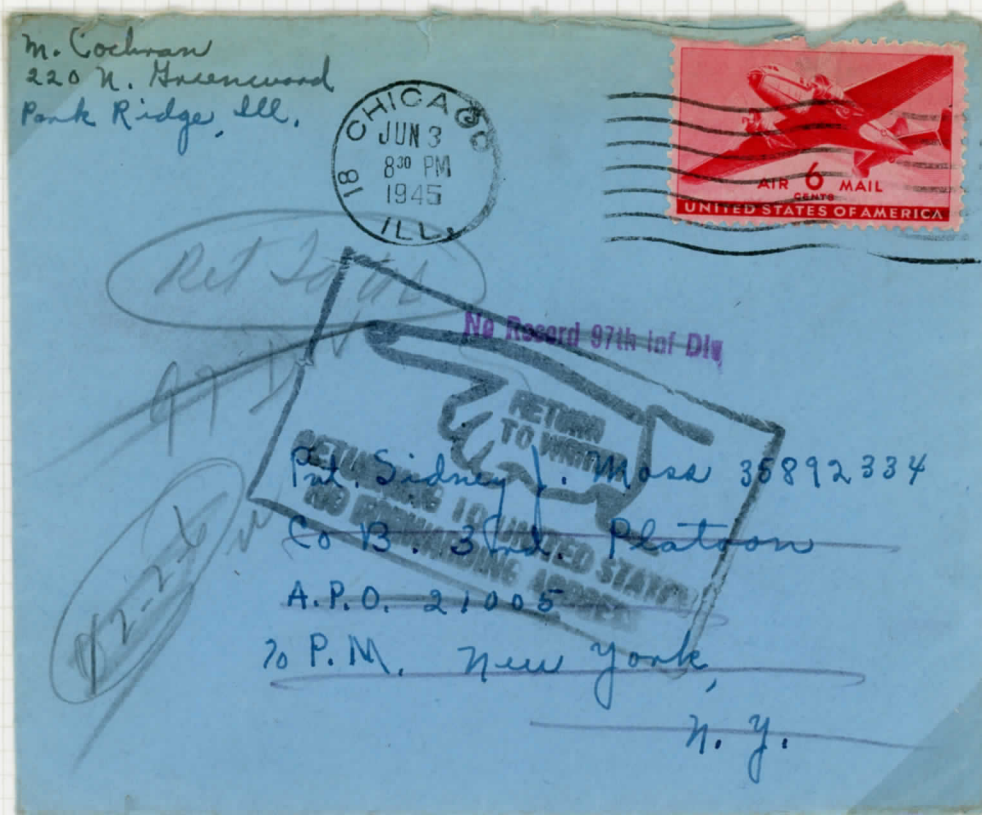 M. Cochran
220 N. Greenwood
Park Ridge, Ill.
CHICAGO
18
JUN 3
8³⁰ PM
1945
ILL.
AIR 6 MAIL
CENTS
UNITED STATES OF AMERICA
Ret to
97 Div
No Record 97th Inf Div
RETURN
TO WRITER
RETURNING TO UNITED STATES
NO FORWARDING ADDRESS
Pvt. Sidney J. Moss 35892334
Co B. 3rd. Platoon
A.P.O. 21005
% P.M. New York,
N. Y.